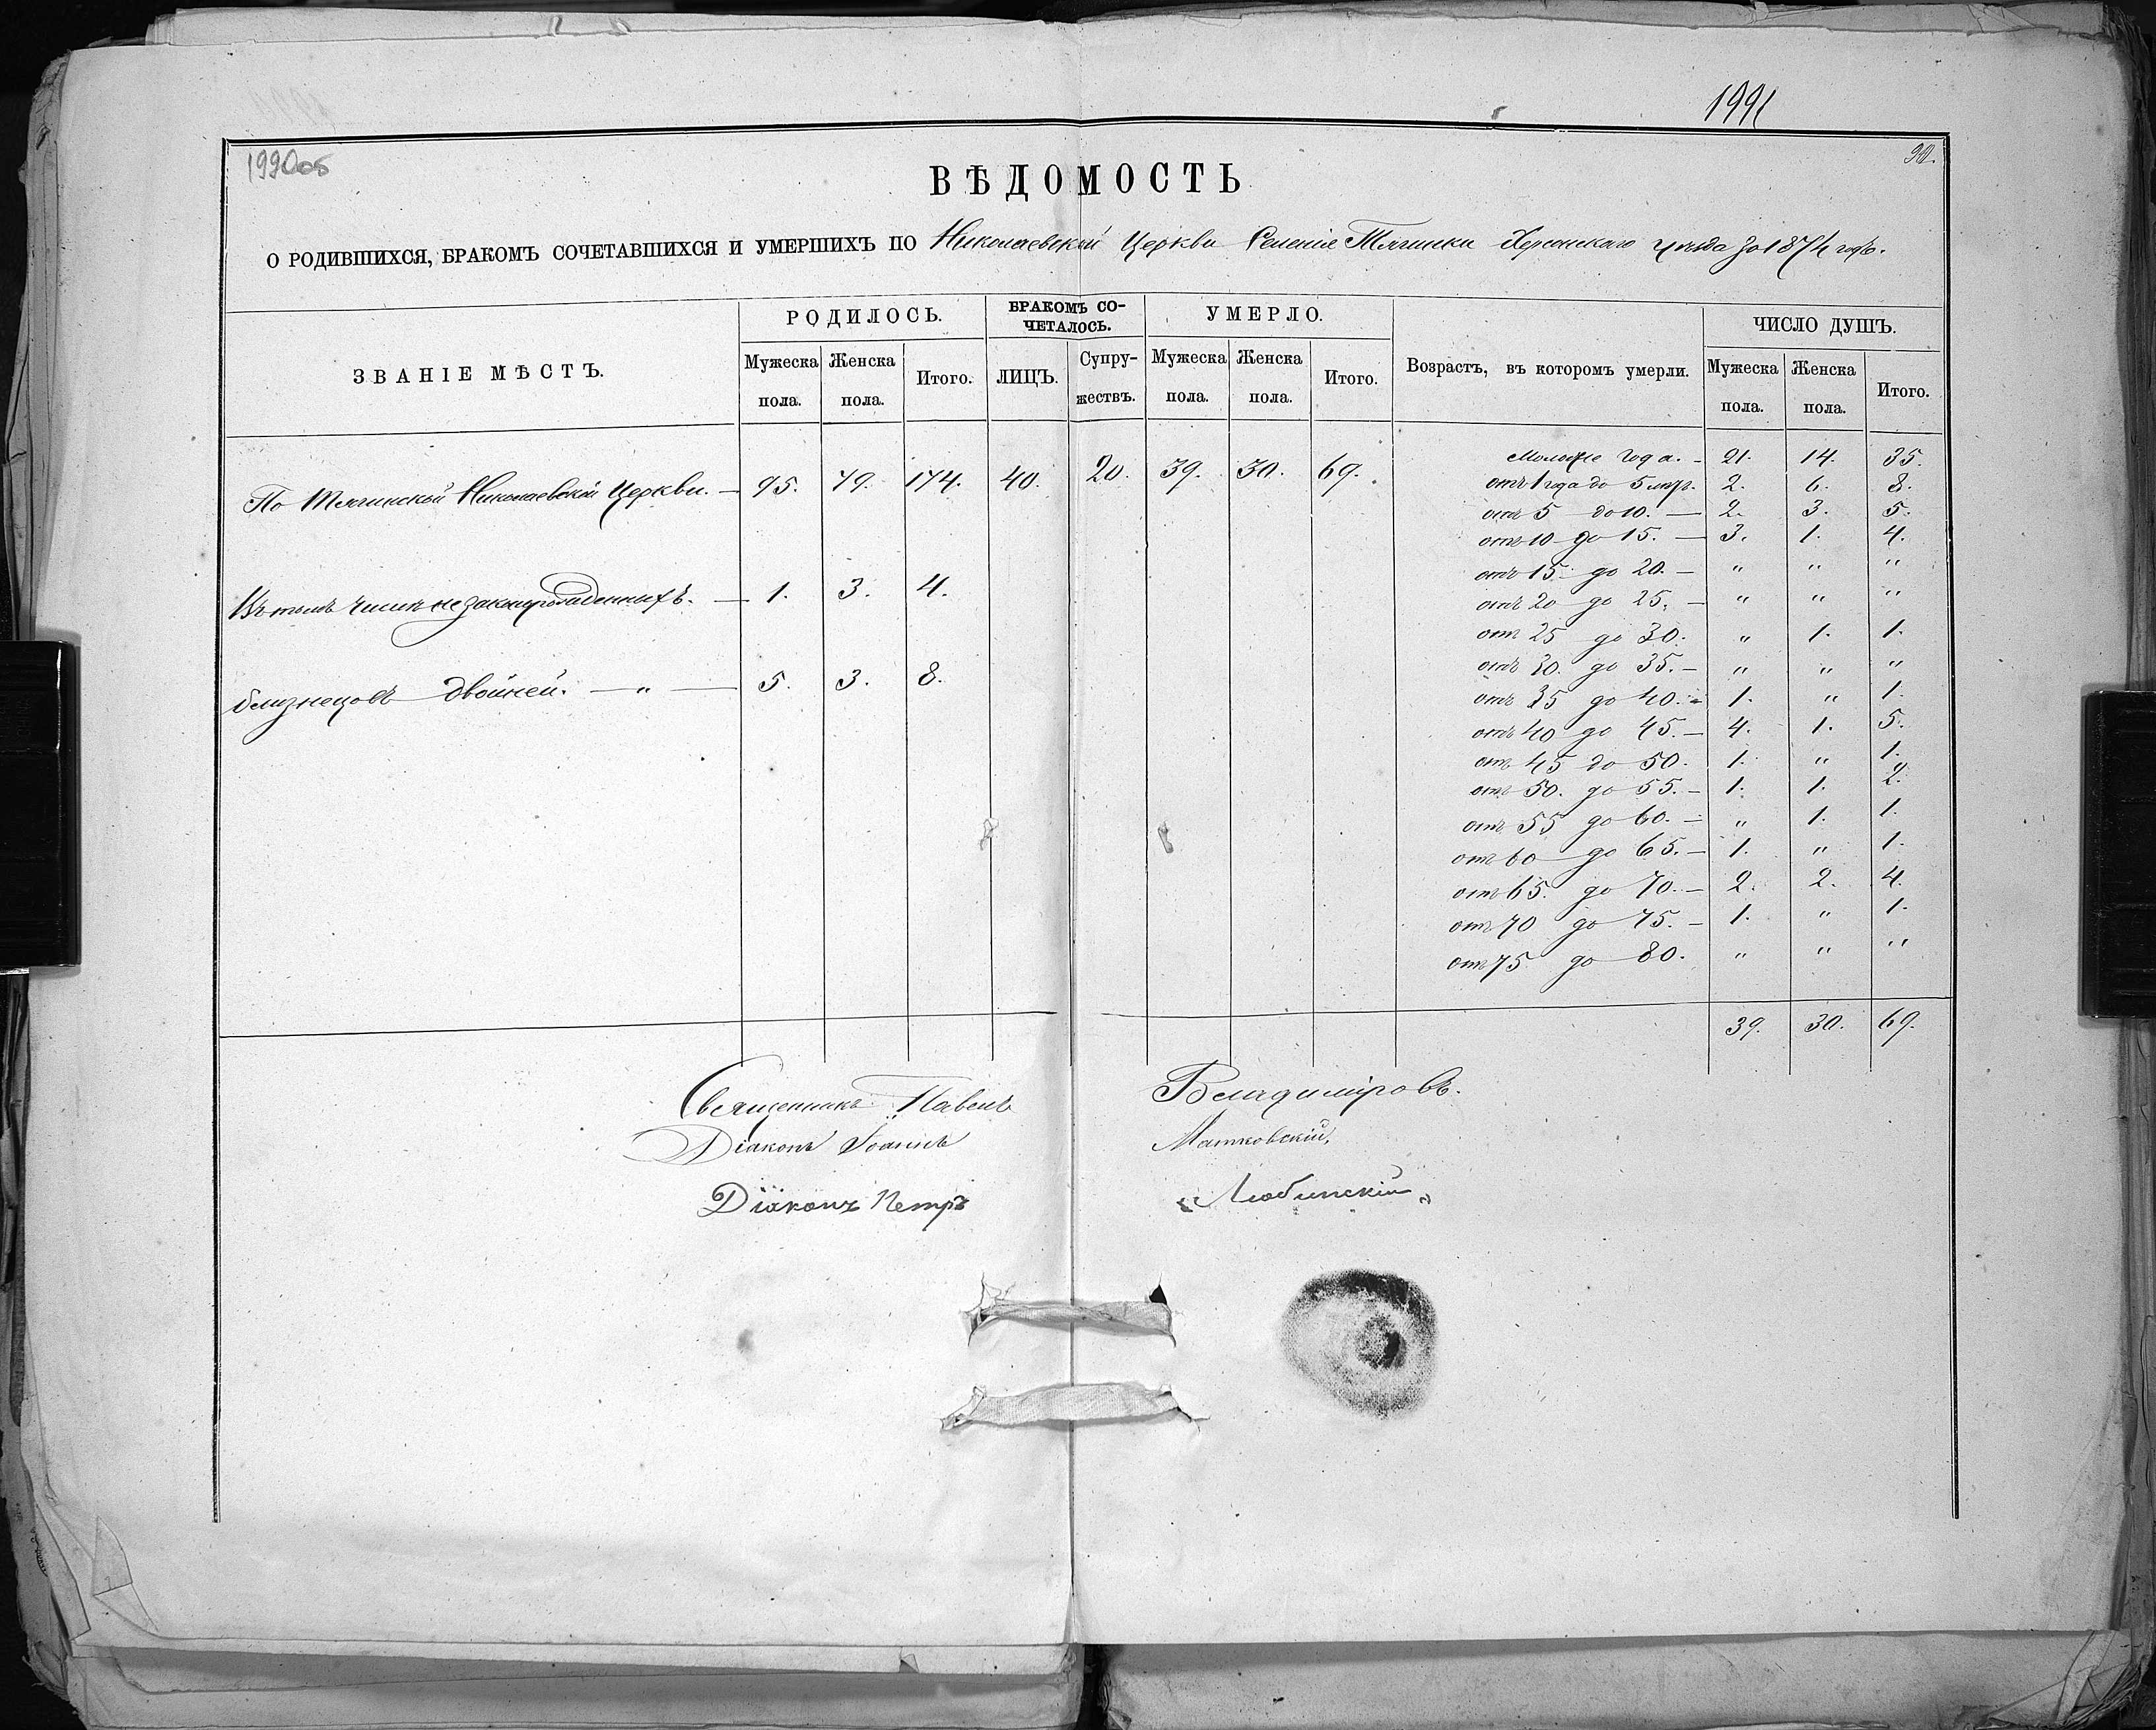 1991
1990об
ВѢДОМОСТЬ
О РОДИВШИХСЯ, БРАКОМЪ СОЧЕТАВШИХСЯ И УМЕРШИХЪ ПО Николаевской Церкви Селенія Тягинки Херсонскаго уѣзда за 1874 годъ.
ЗВАНІЕ МѢСТЪ. РОДИЛОСЬ. БРАКОМЪ СО-ЧЕТАЛОСЬ. УМЕРЛО. Возрастъ, въ которомъ умерли. ЧИСЛО ДУШЪ.
Мужеска пола. Женска пола. Итого. ЛИЦЪ. Супружествъ. Мужеска пола. Женска пола. Итого. Мужеска пола. Женска пола. Итого.
По Тягинской Николаевской Церкви. — 95. 79. 174. 40. 20. 39. 30. 69.
Въ томъ числѣ незаконорожденныхъ. — 1. 3. 4.
близнецовъ двойней. — „ — 5. 3. 8.
Моложе года. – 21. 14. 35.
отъ 1 года до 5 лѣтъ. 2. 6. 8.
отъ 5 до 10. — 2. 3. 5.
отъ 10 до 15. — 3. 1. 4.
отъ 15 до 20. — „ „ „
отъ 20 до 25. — „ „ „
отъ 25 до 30. „ 1. 1.
отъ 30. до 35. — „ „ „
отъ 35 до 40. – 1. „ 1.
отъ 40 до 45. — 4. 1. 5.
отъ 45 до 50. 1. „ 1.
отъ 50. до 55. – 1. 1. 2.
отъ 55 до 60. – „ 1. 1.
отъ 60 до 65. – 1. „ 1.
отъ 65. до 70. – 2. 2. 4.
отъ 70 до 75. – 1. „ 1.
отъ 75 до 80. „ „ „
39. 30. 69.
Священникъ Павелъ Владиміровъ.
Діаконъ Іоаннъ Матковскій,
Діаконъ Петръ „Любинскій„